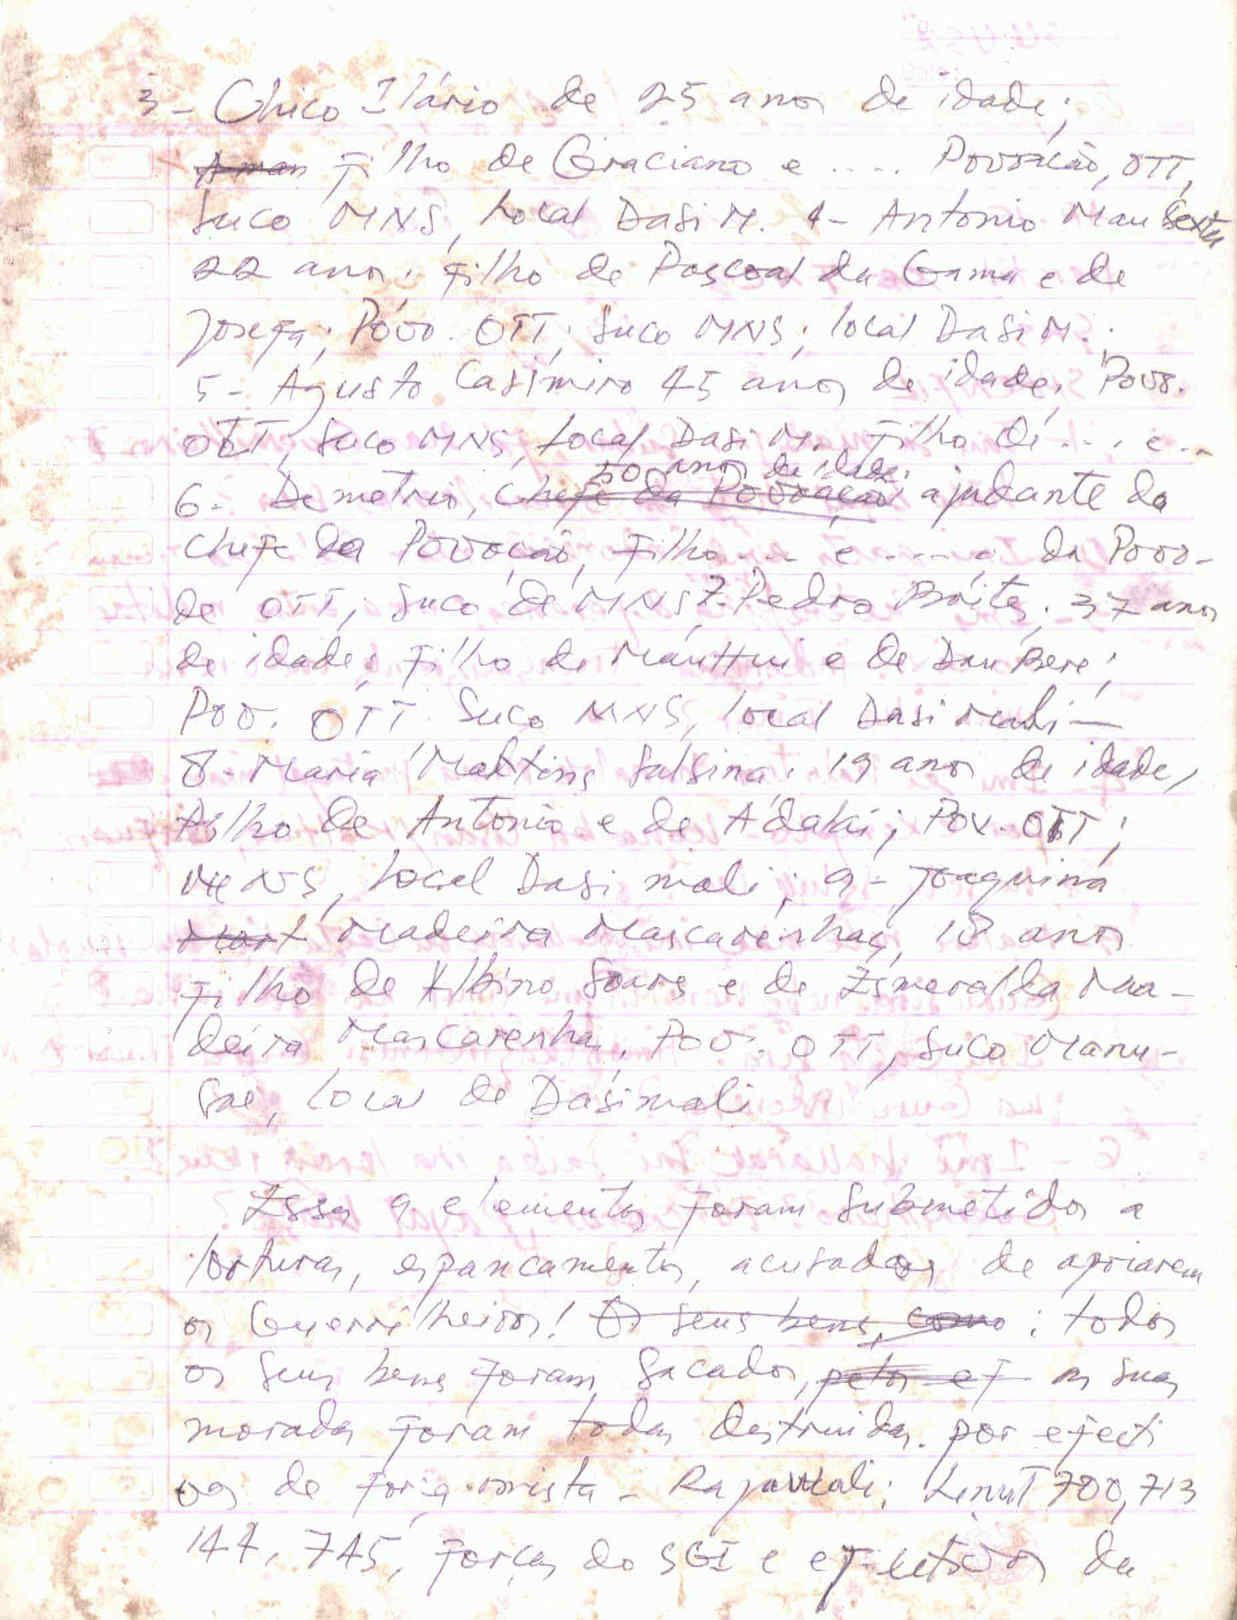 3 - Chico Ilário de 25 anos de idade;
Aman Filho de Graciano e .... Povoação, OTT,
Suco MNS, Local Dasi M. 4 - Antonio Mau
22 anos. Filho de Pascoal da Gama e de
Josefa; Póvo. OTT; Suco MNS; local Dasi M.
5 - Agusto Casimiro 45 anos de idade. Povo.
OTT, Suco MNS, Local Dasi M. Filho de .... e ..
50 anos de idade.
6 - Demetrio, Chefe da Povoação ajudante do
Chefe da Povoação, Filho ... e ....; da Povo-
de OTT; Suco de MNS 7. Pedro Boites. 37 anos
de idade; Filho de e de Dau Bere;
Pov. OTT. Suco MNS, local Dasi mali —
8 - Maria Maltins Salsina. 19 anos de idade,
Filho de Antonio e de Adaki; Pov. OTT;
MNS, Local Dasi mali; 9 - Joaquina
Mart Madeira Mascarenhas, 18 anos
Filho de Albino Soares e de Esmeralda Maa-
deira Mascarenhas. Pov. OTT, Suco Manu-
sae, Local de Dasimali
Esses 9 elementos foram submetidos a
torturas, espancamentos, acusados de apoiarem
os Guerrilheiros! Os seus bens, como ; todos
os seus bens foram sacados, pelos ef as suas
moradas foram todas destruidas. por efecti
vos de força mista - Rajawali; Linut 700, 713
144, 745, forças do SGI e efectivos da